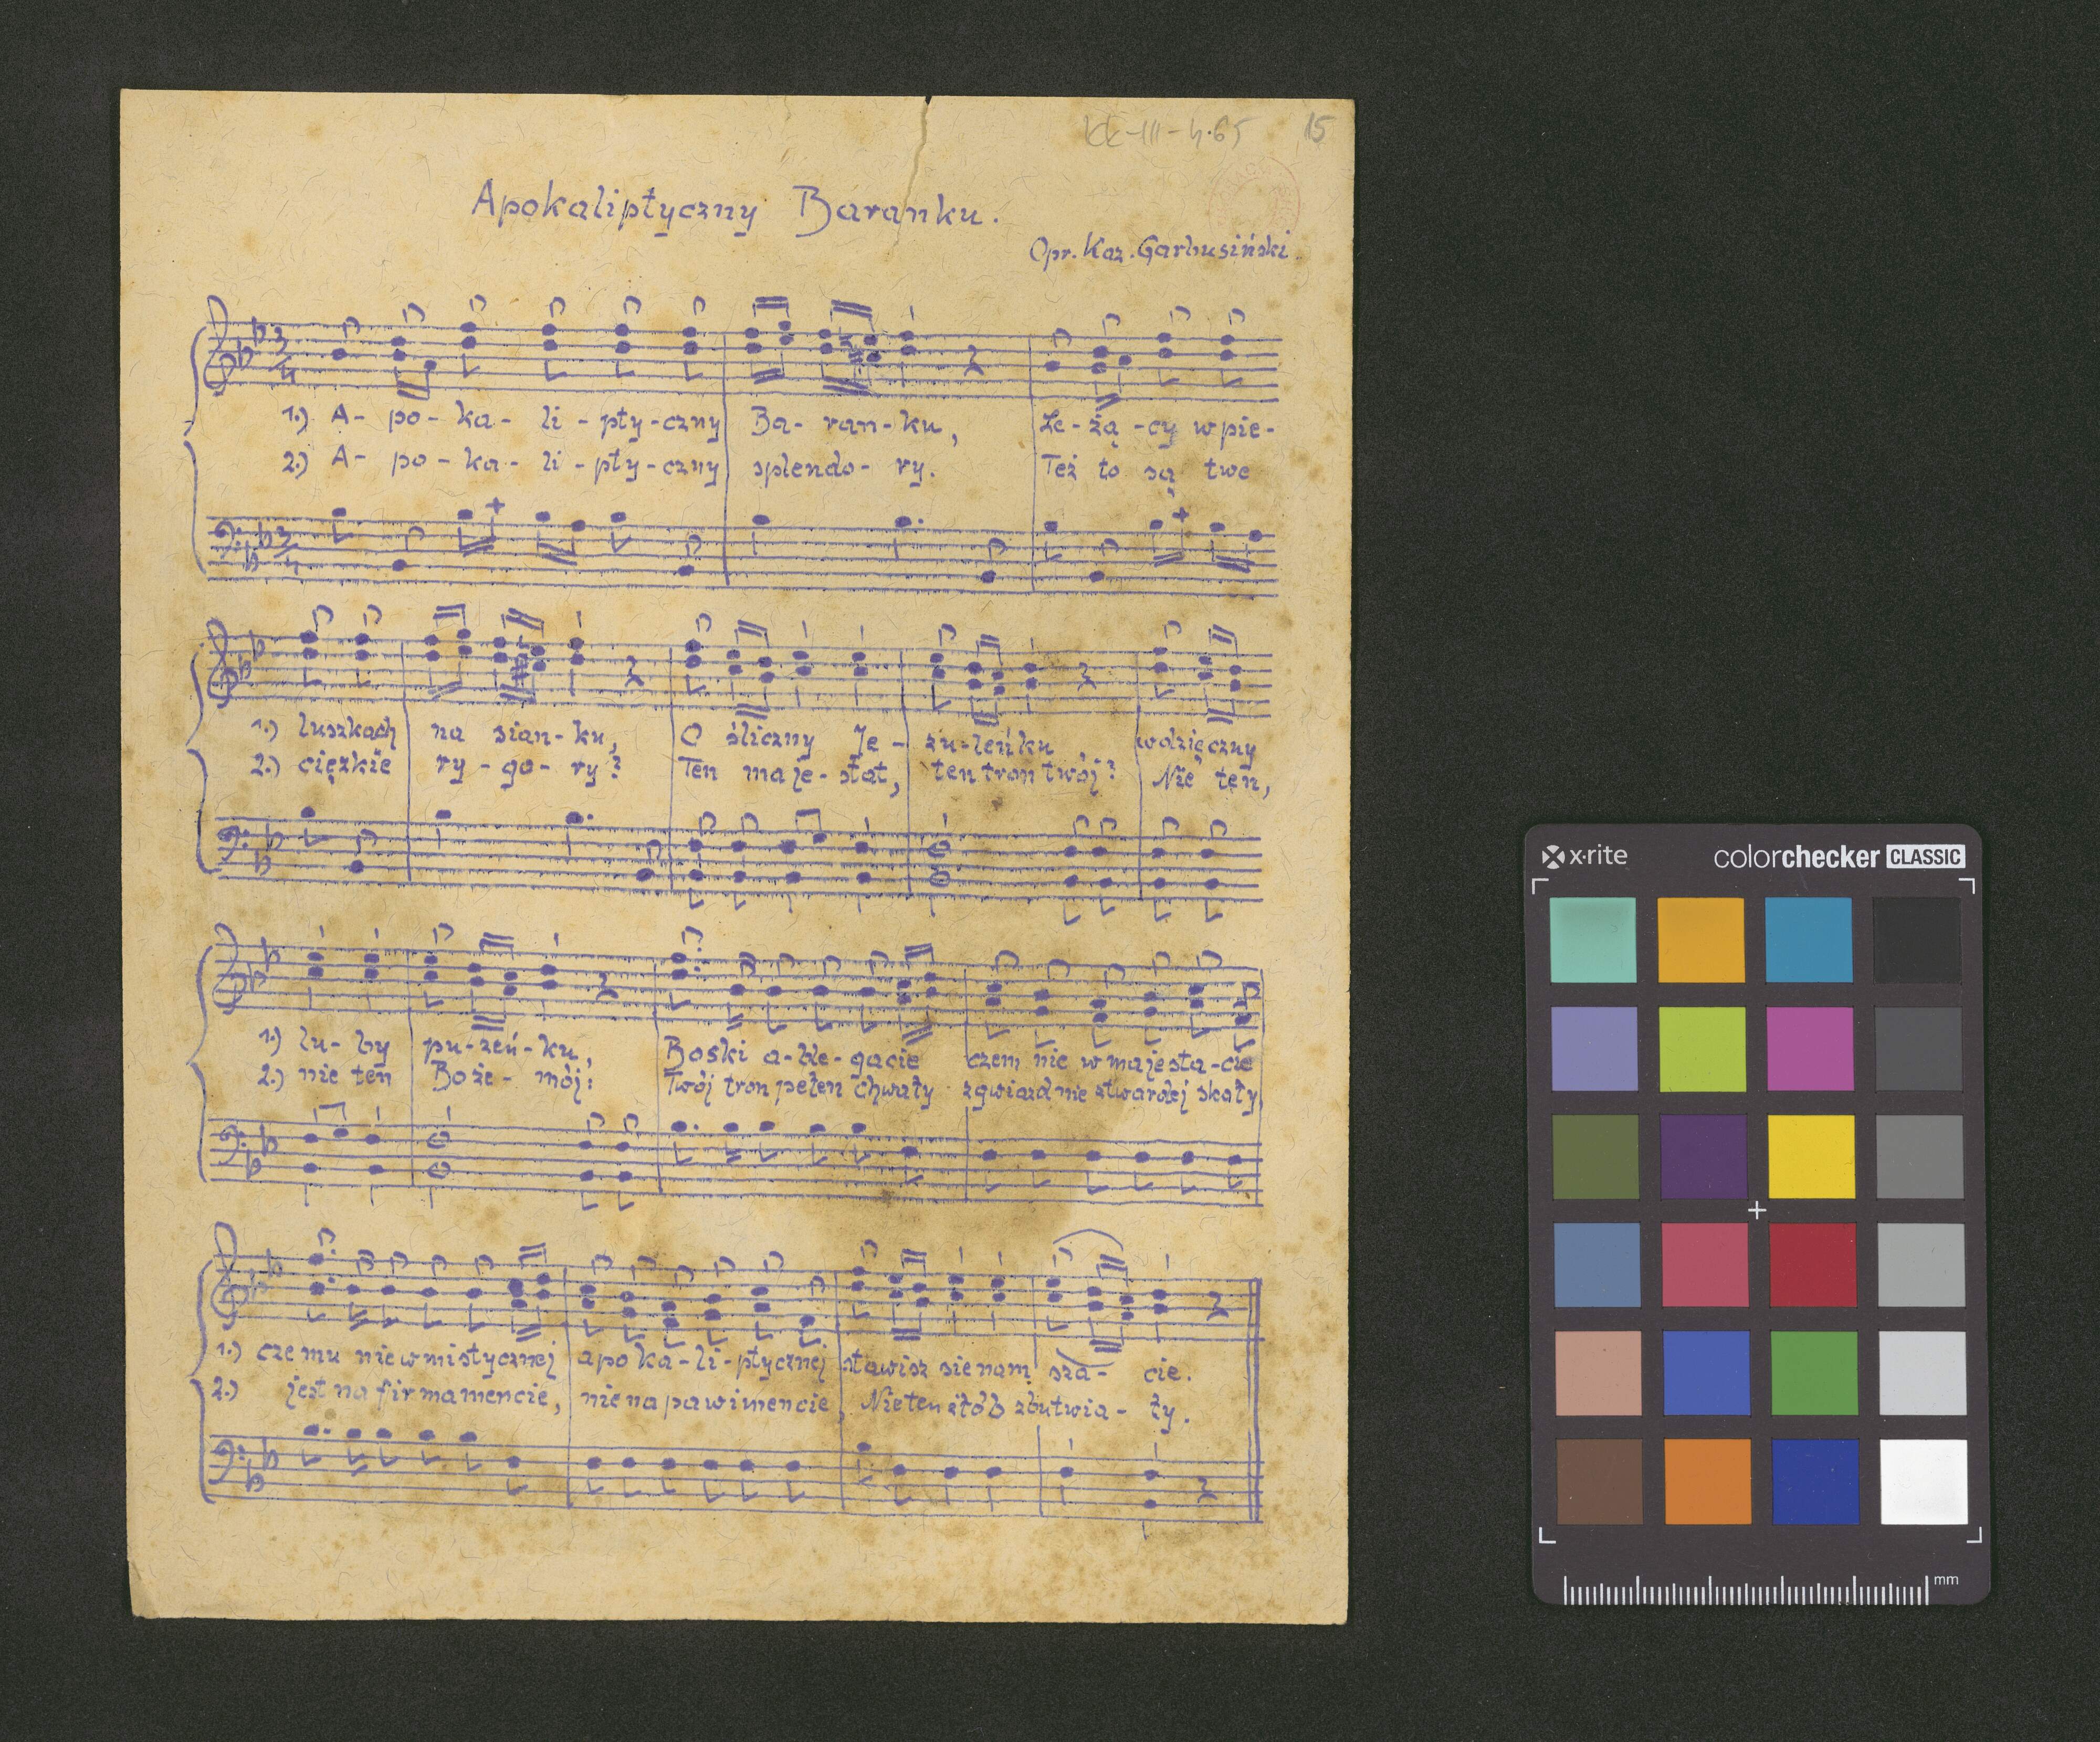 KK-III-4.65 15
Apokaliptyczny Baranku.
Opr. Kaz. Garbusiński.
1.) A- po- ka- li- pty-czny Ba- ran-ku, Le-żą-cy w pie-
2.) A- po-ka- li-pty-czny splendo- ry. Też to są twe
1.) luszkach na sian-ku, O śliczny Je- zu-leńku wdzięczny
2.) ciężkie ry-go-ry? Ten maje-stat, ten tron twój? Nie ten,
1.) lu-by pu-zeń-ku, Boski a-ble-gacie czem nie w majesta-cie
2.) nie ten Boże- mój: Twój tron pełen chwały z gwiazd nie ztwardej skały,
1.) czemu nie w mistycznej apo ka-li-ptycznej stawisz sie nam sza- cie.
2.) jest na firmamencie, nie na pawimencie, Nie ten żłób zbutwia- ły.
x·rite colorchecker CLASSIC
mm